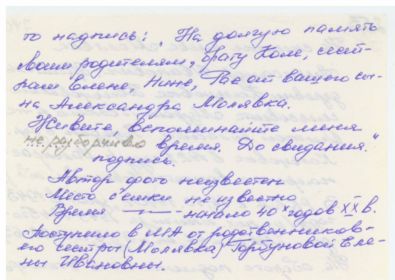 то надпись: „На долгую память
Моим родителям, брату Коле, сест-
рам Елене, Нине, Рае от вашего сы-
на Александра Молявка.
Живите, вспоминайте меня
не свободного время. До свидания."
подпись.
Автор фото неизвестен
Место съемки не известно
Время —— начало 40ˣ годов XX в.
Поступило в МА от родственников-
его сестры (Молявка) Горбуновой Еле-
ны Ивановны.